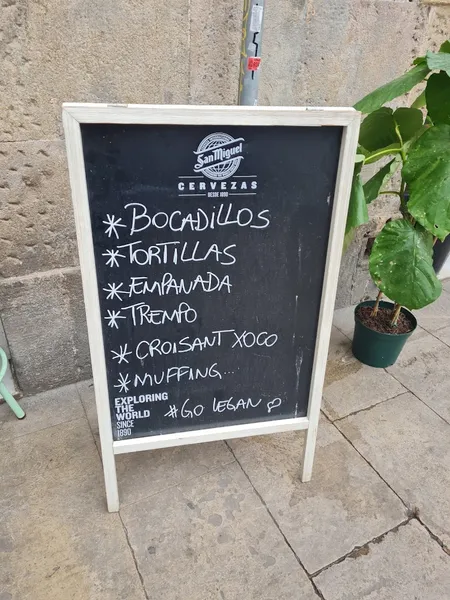 San Miguel
CERVEZAS
DESDE 1890
*BOCADILLOS
*TORTILLAS
*EMPANADA
*TREMPO
*CROISANT XOCO
*MUFFING...
EXPLORING
THE
WORLD
SINCE
1890
#GO LEGAN